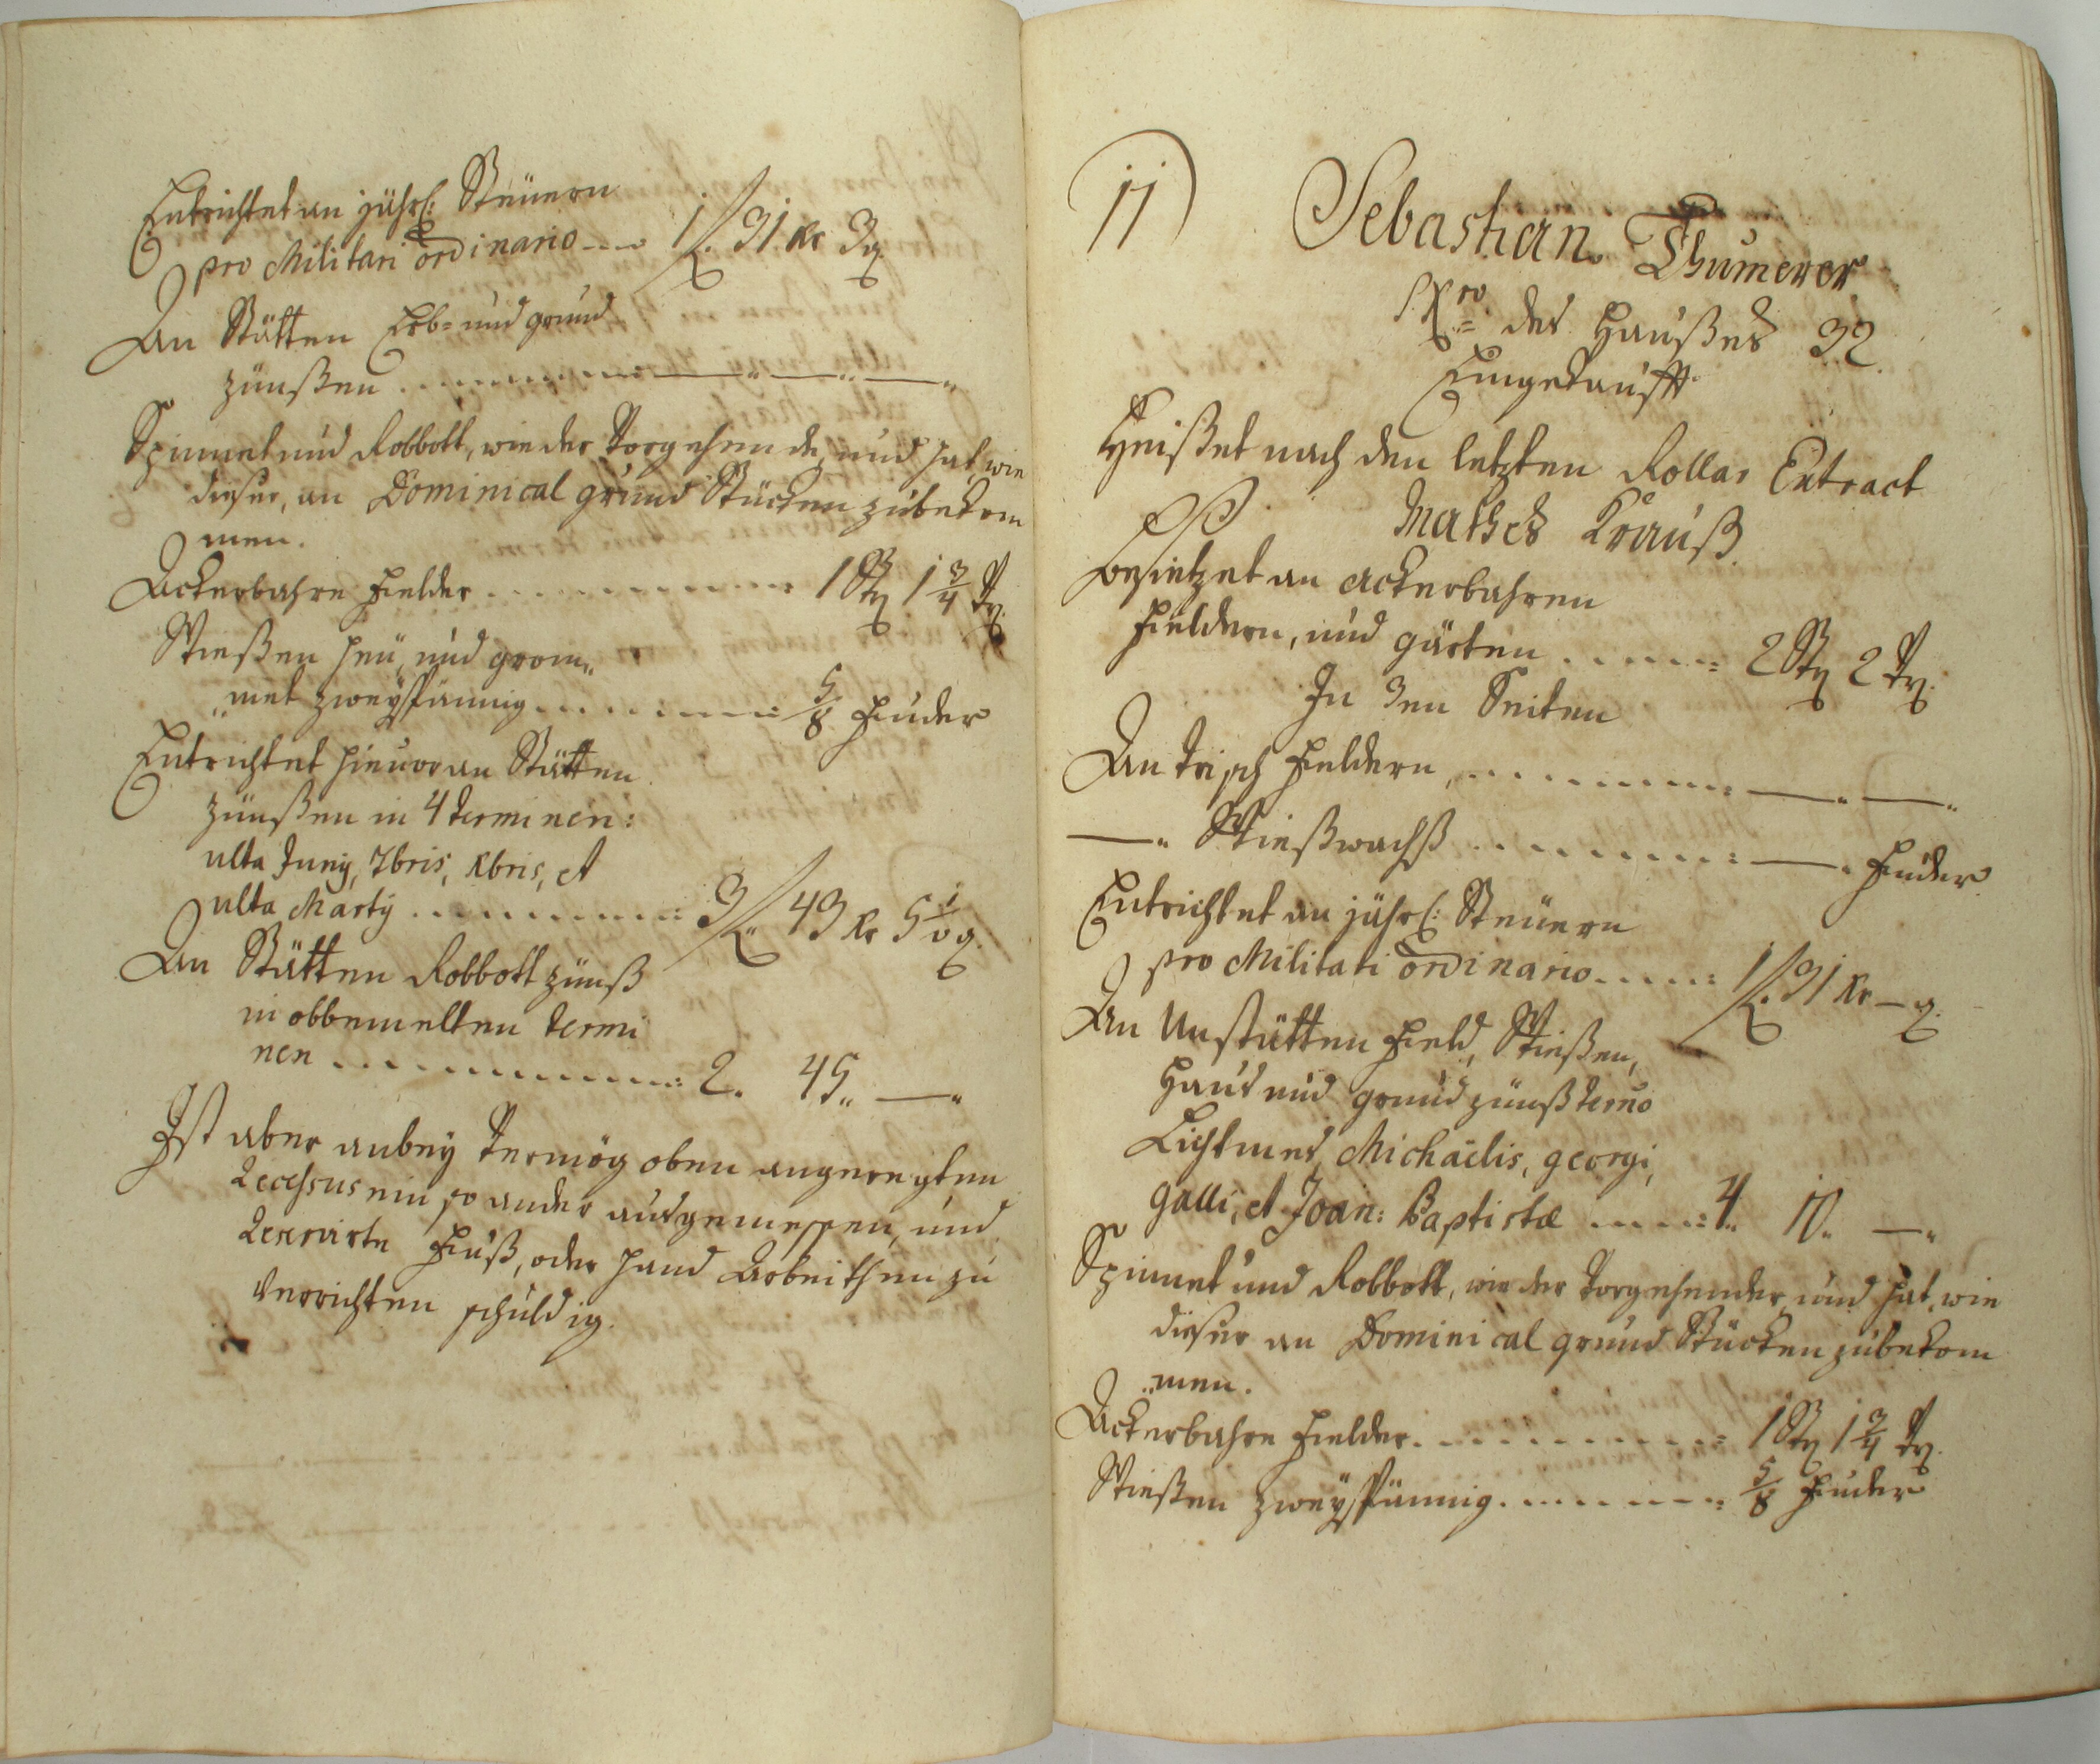 Entrichtet an jährl: Steüern
pro Militari ordinario --- 1 f. 31 Kr 3 q.
An Stätten Erb- und grund
zünßen . . . . . . — " — " — "
Spinnet und Robbott, wie der Vorgehende, und hat, wie
dieser, an Dominical grund Stücken zubekom
men.
Ackerbahre Fielder . . . . . . 1 Str 1 3/4 Vr.
Wießen heü, und grom„
„met zweyspännig . . . . . . 5/8 Fuder
Entrichtet hievor an Stätten
zünßen in 4 terminen:
ulta Juny, 7bris, Xbris, et
ulta Marty . . . . . . 3 f. 43 Kr 5 q.
An Stätten Robbott zünß
in obbemelten termi
nen . . . . . . 2. 45.. — "
Ist aber anbey Vermög oben angeregten
Recessus ein so ander ausgemessen, und
Reservirte Fuß, oder hand Arbeithen zu
Verrichten schuldig.
11)
Sebastian Thumerer
Nro des Haußes 32.
Eingekaufft.
Heißet nach den letzten Rollar Extract
Mathes Krauß.
Besietzet an ackerbahren
Fieldern, und gärten . . . . . . 2 Str 2 Vr.
In 3en Seiten
An trisch Fieldern . . . . . . — " — "
— " Wießwachß . . . . . . — . Fuder
Entrichtet an jährl: Steüern
pro Militari ordinario . . . . . 1 f. 31 Kr — q.
An Unstätten Field, Wießen,
Hauß und grund zünß termo
Lichtmes, Michaëlis, georgi,
galli, et Joan: Baptistæ . . . . . 4.. 10.. — "
Spinnet und Robbott, wie der Vorgehender, und hat, wie
dieser an Dominical grund Stücken zubekom
„men.
Ackerbahre Fielder . . . . . . 1 Str 1 3/4 Vr.
Wießen zweyspännig . . . . . . 5/8 Fuder